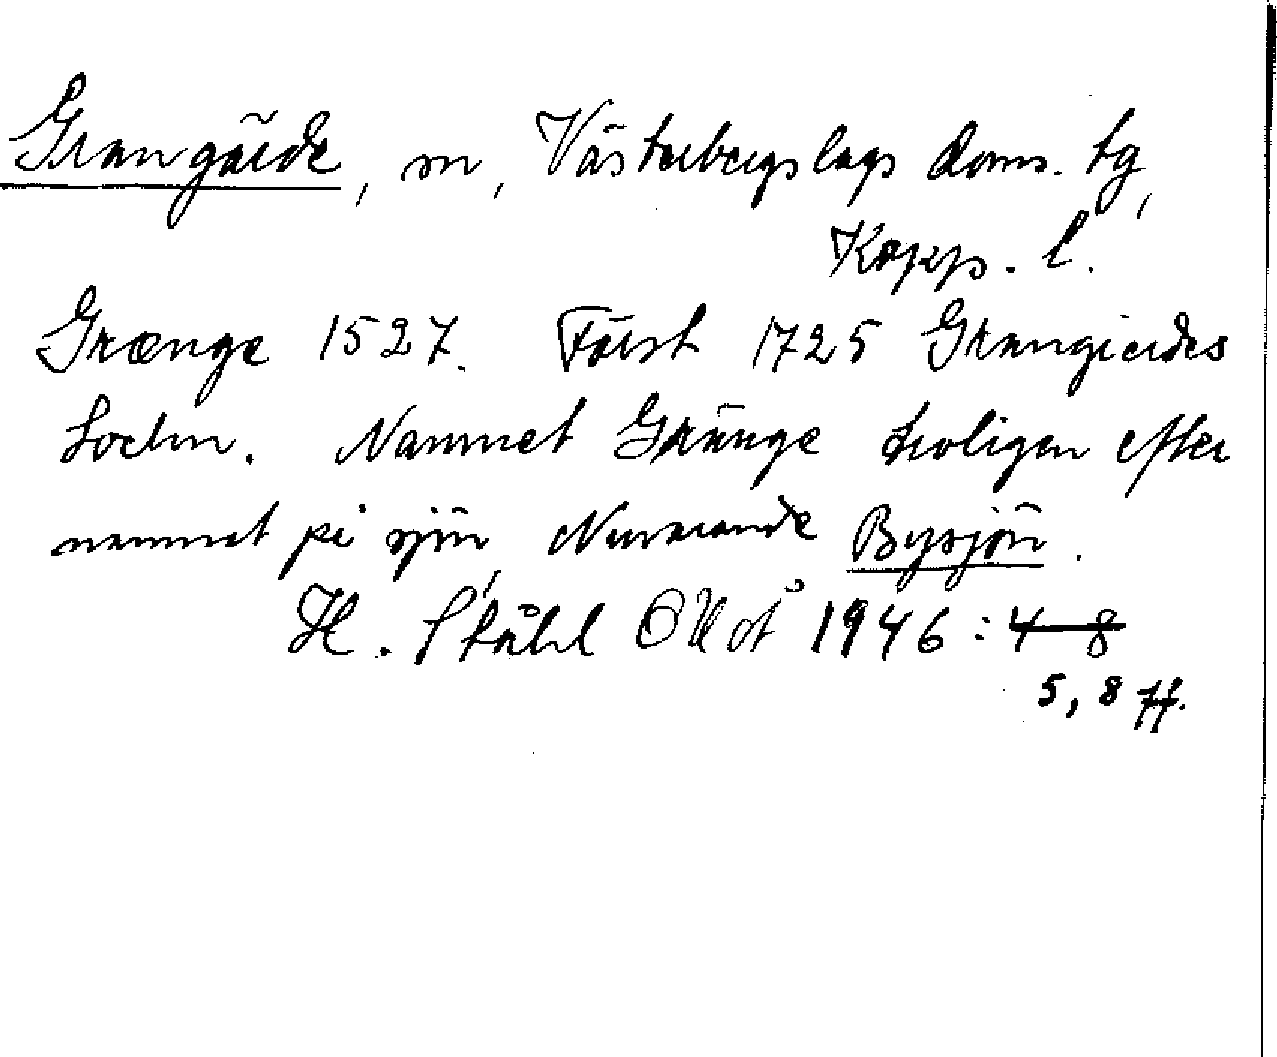 Grangärde, sn, Västerbergslags doms. tg,
Kopp. l.
Grænge 1527. Först 1725 Grangierdes
Sochn. Namnet Gränge troligen efter
namnet på sjön, Nuvarande Bysjön.
H. Ståhl OUoÅ 1946: 4-8
5, 8 ff.